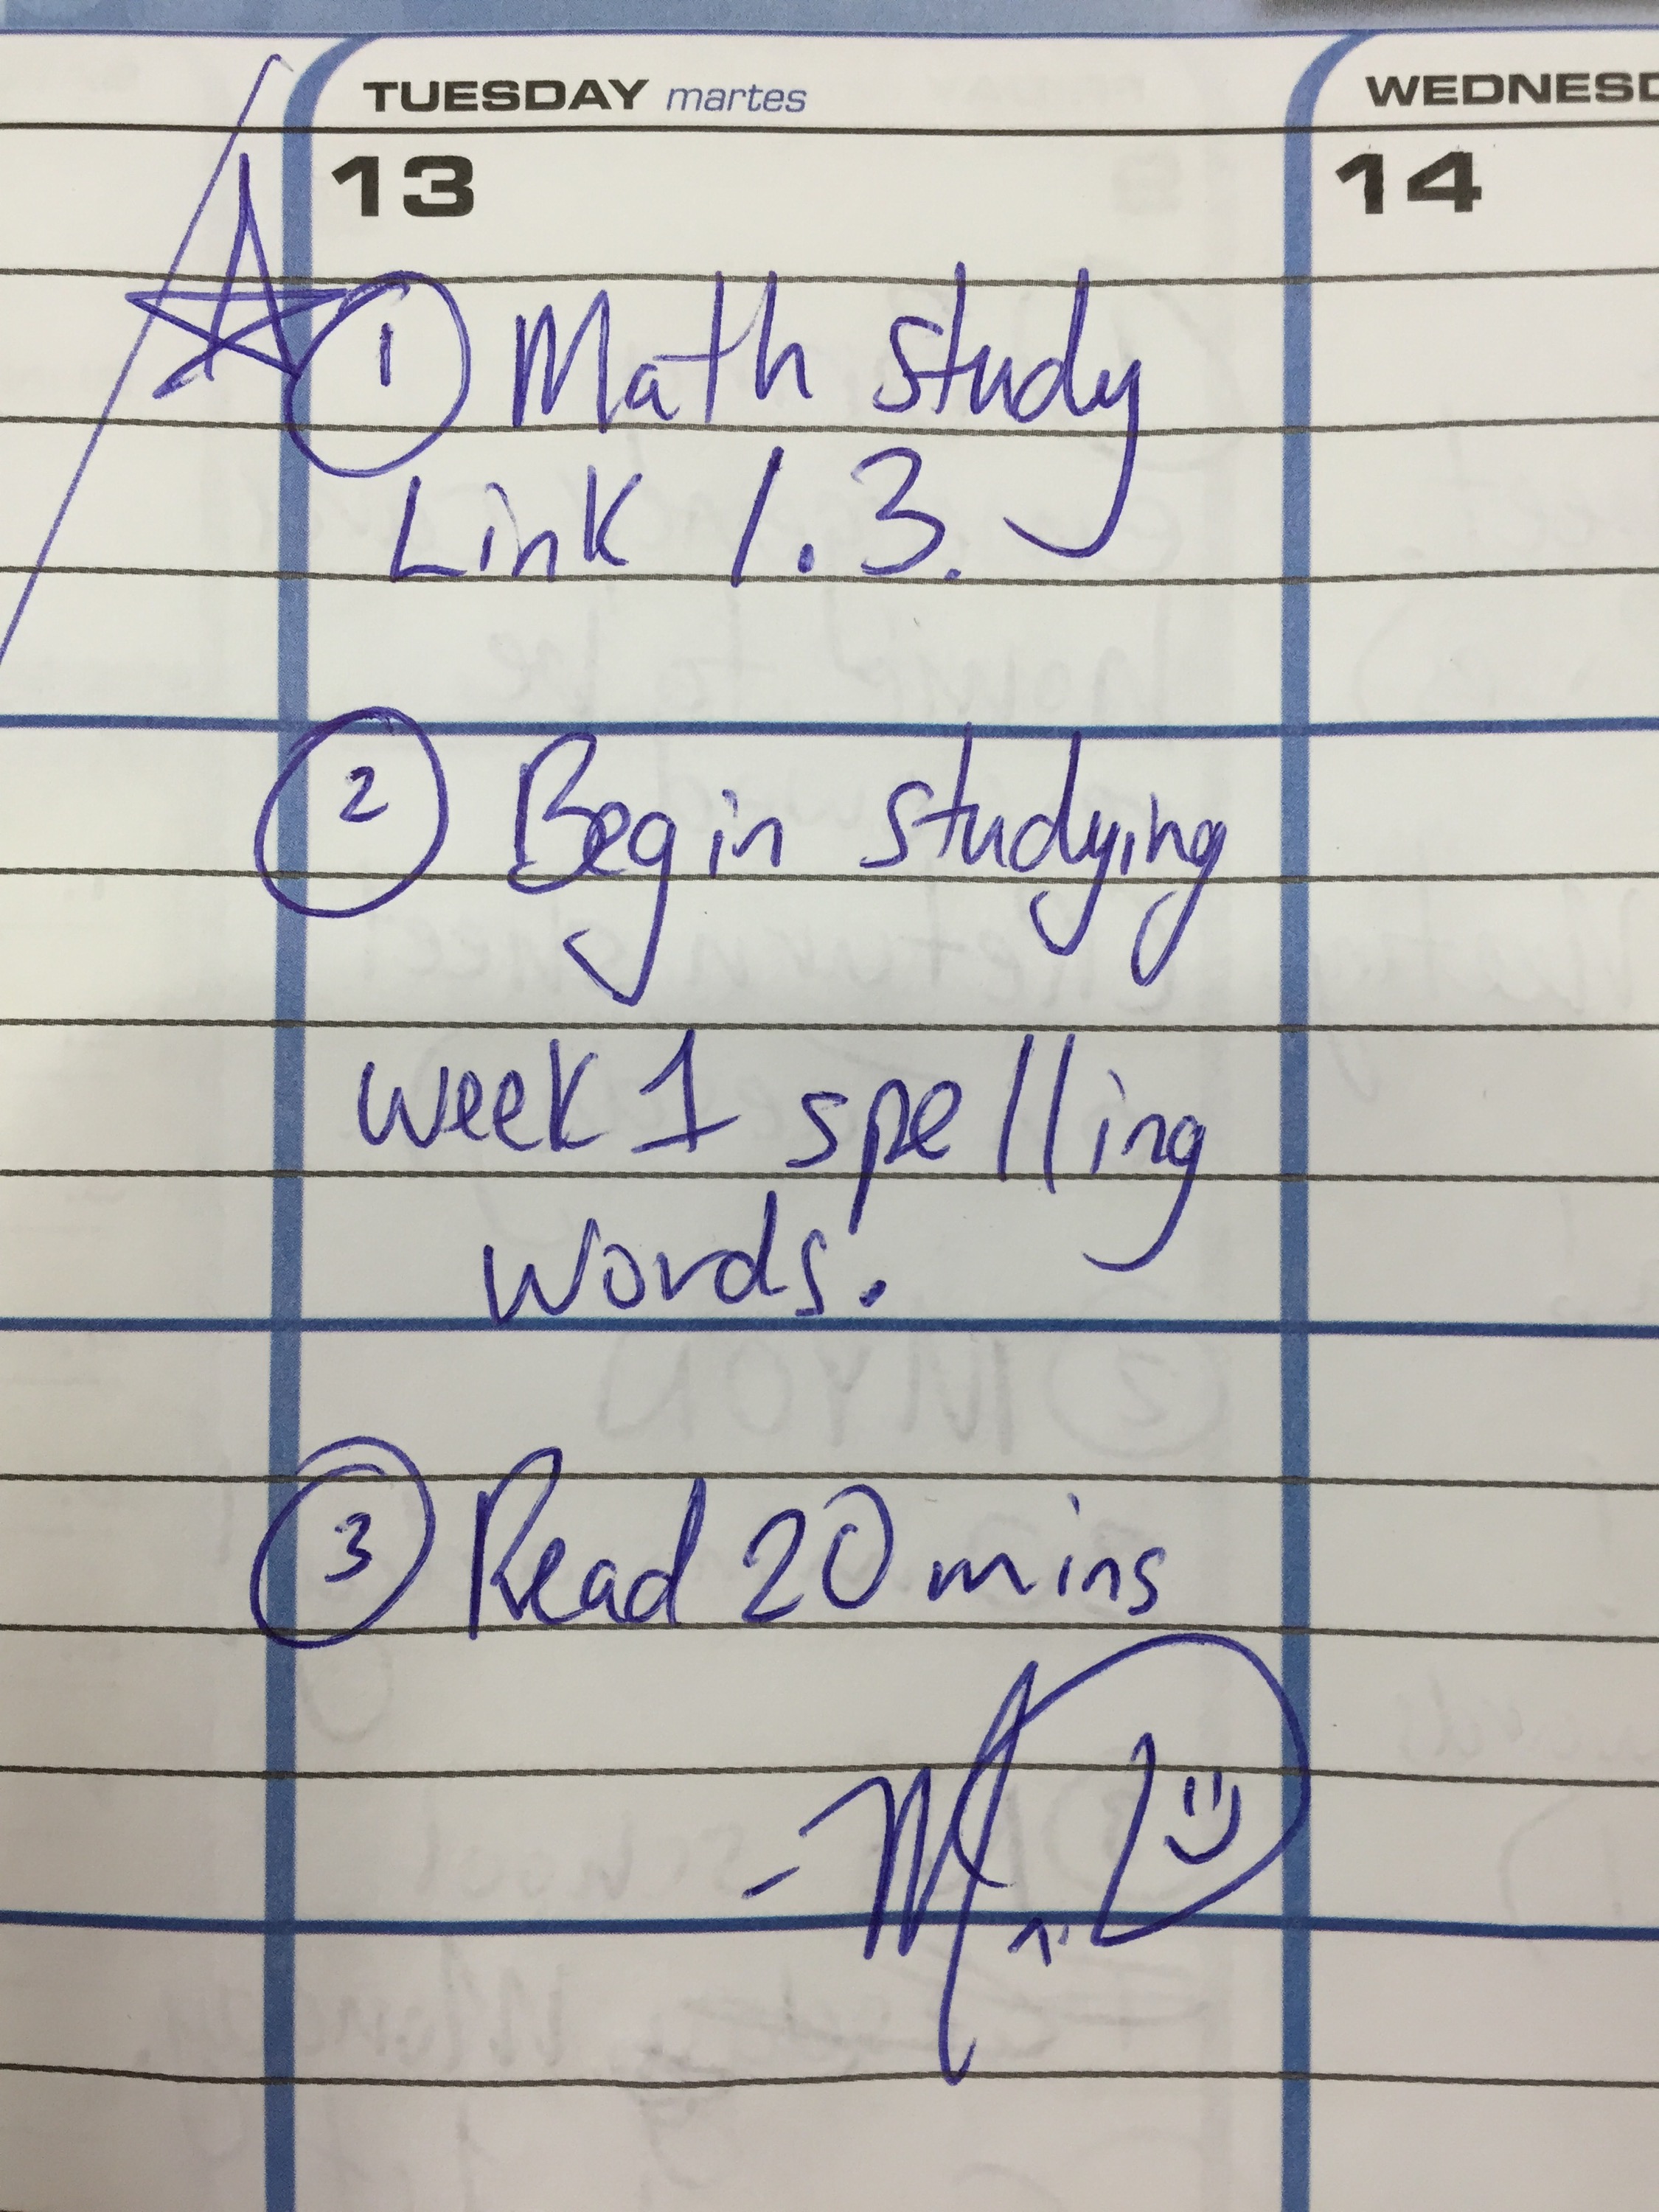 TUESDAY martes
WEDNESD
13
14
1 Math study
Link 1.3.
2 Begin studying
week 1 spelling
words.
3 Read 20 mins